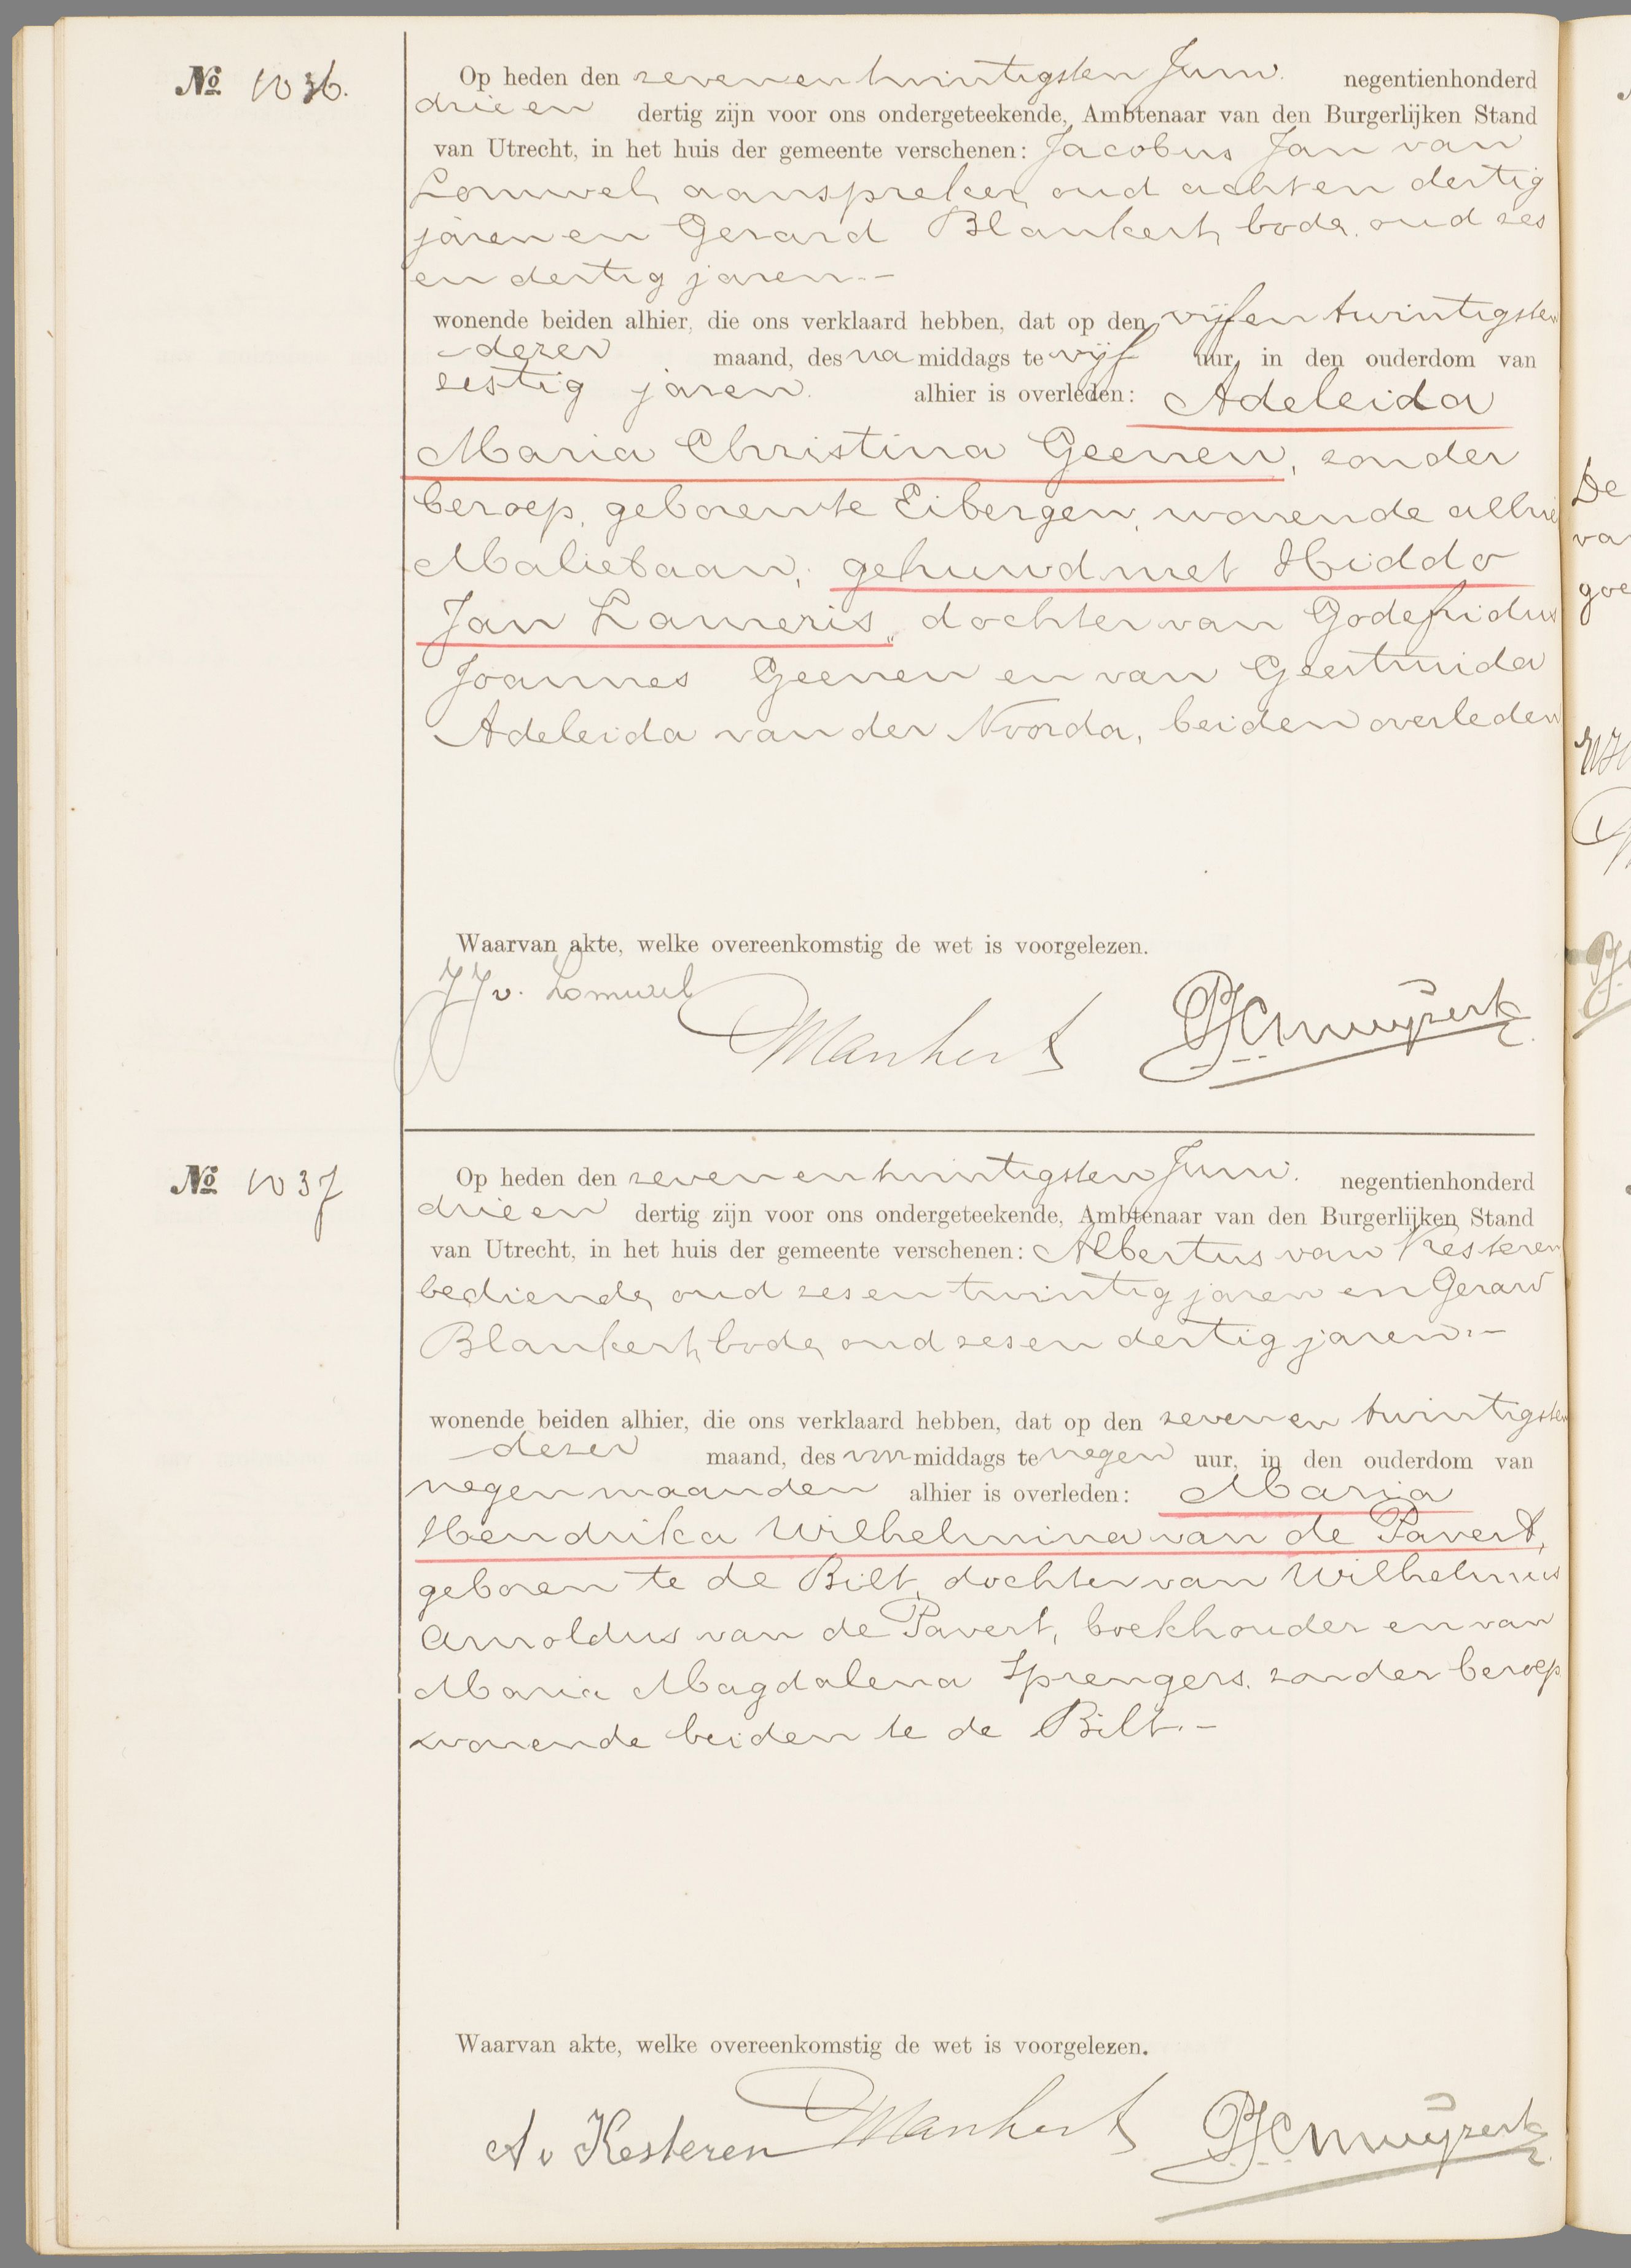 No 1036.
Op heden den zevenentwintigsten Juni. negentienhonderd
drieen dertig zijn voor ons ondergeteekende, Ambtenaar van den Burgerlijken Stand
van Utrecht, in het huis der gemeente verschenen: Jacobus Jan van
Lomwel, aanspreker, oud achtendertig
jaren en Gerard Blankert, bode, oud zes
en dertig jaren.-
wonende beiden alhier, die ons verklaard hebben, dat op den vijfentwintigsten
dezer maand, des namiddags te vijf uur, in den ouderdom van
zestig jaren. alhier is overleden: Adeleida
Maria Christina Geenen, zonder
beroep, geboren te Eibergen, wonende alhier
Maliebaan, gehuwd met Hiddo
Jan Lameris, dochter van Godefridus
Joannes Geenen en van Geertruida
Adeleida van der Noorda, beiden overleden
Waarvan akte, welke overeenkomstig de wet is voorgelezen.
JJ v. Lomwel
No 1037
Op heden den zevenentwintigsten Juni. negentienhonderd
drieen dertig zijn voor ons ondergeteekende, Ambtenaar van den Burgerlijken Stand
van Utrecht, in het huis der gemeente verschenen: Albertus van Kesteren
bediende, oud zesentwintig jaren en Gerard
Blankert, bode, oud zesendertig jaren.-
wonende beiden alhier, die ons verklaard hebben, dat op den zevenentwintigsten
dezer maand, des voormiddags te negen uur, in den ouderdom van
negen maanden alhier is overleden: Maria
Hendrika Wilhelmina van de Pavert,
geboren te de Bilt, dochter van Wilhelmus
Arnoldus van de Pavert, boekhouder en van
Maria Magdalena Sprengers, zonder beroep
wonende beiden te de Bilt.-
Waarvan akte, welke overeenkomstig de wet is voorgelezen.
A v Kesteren